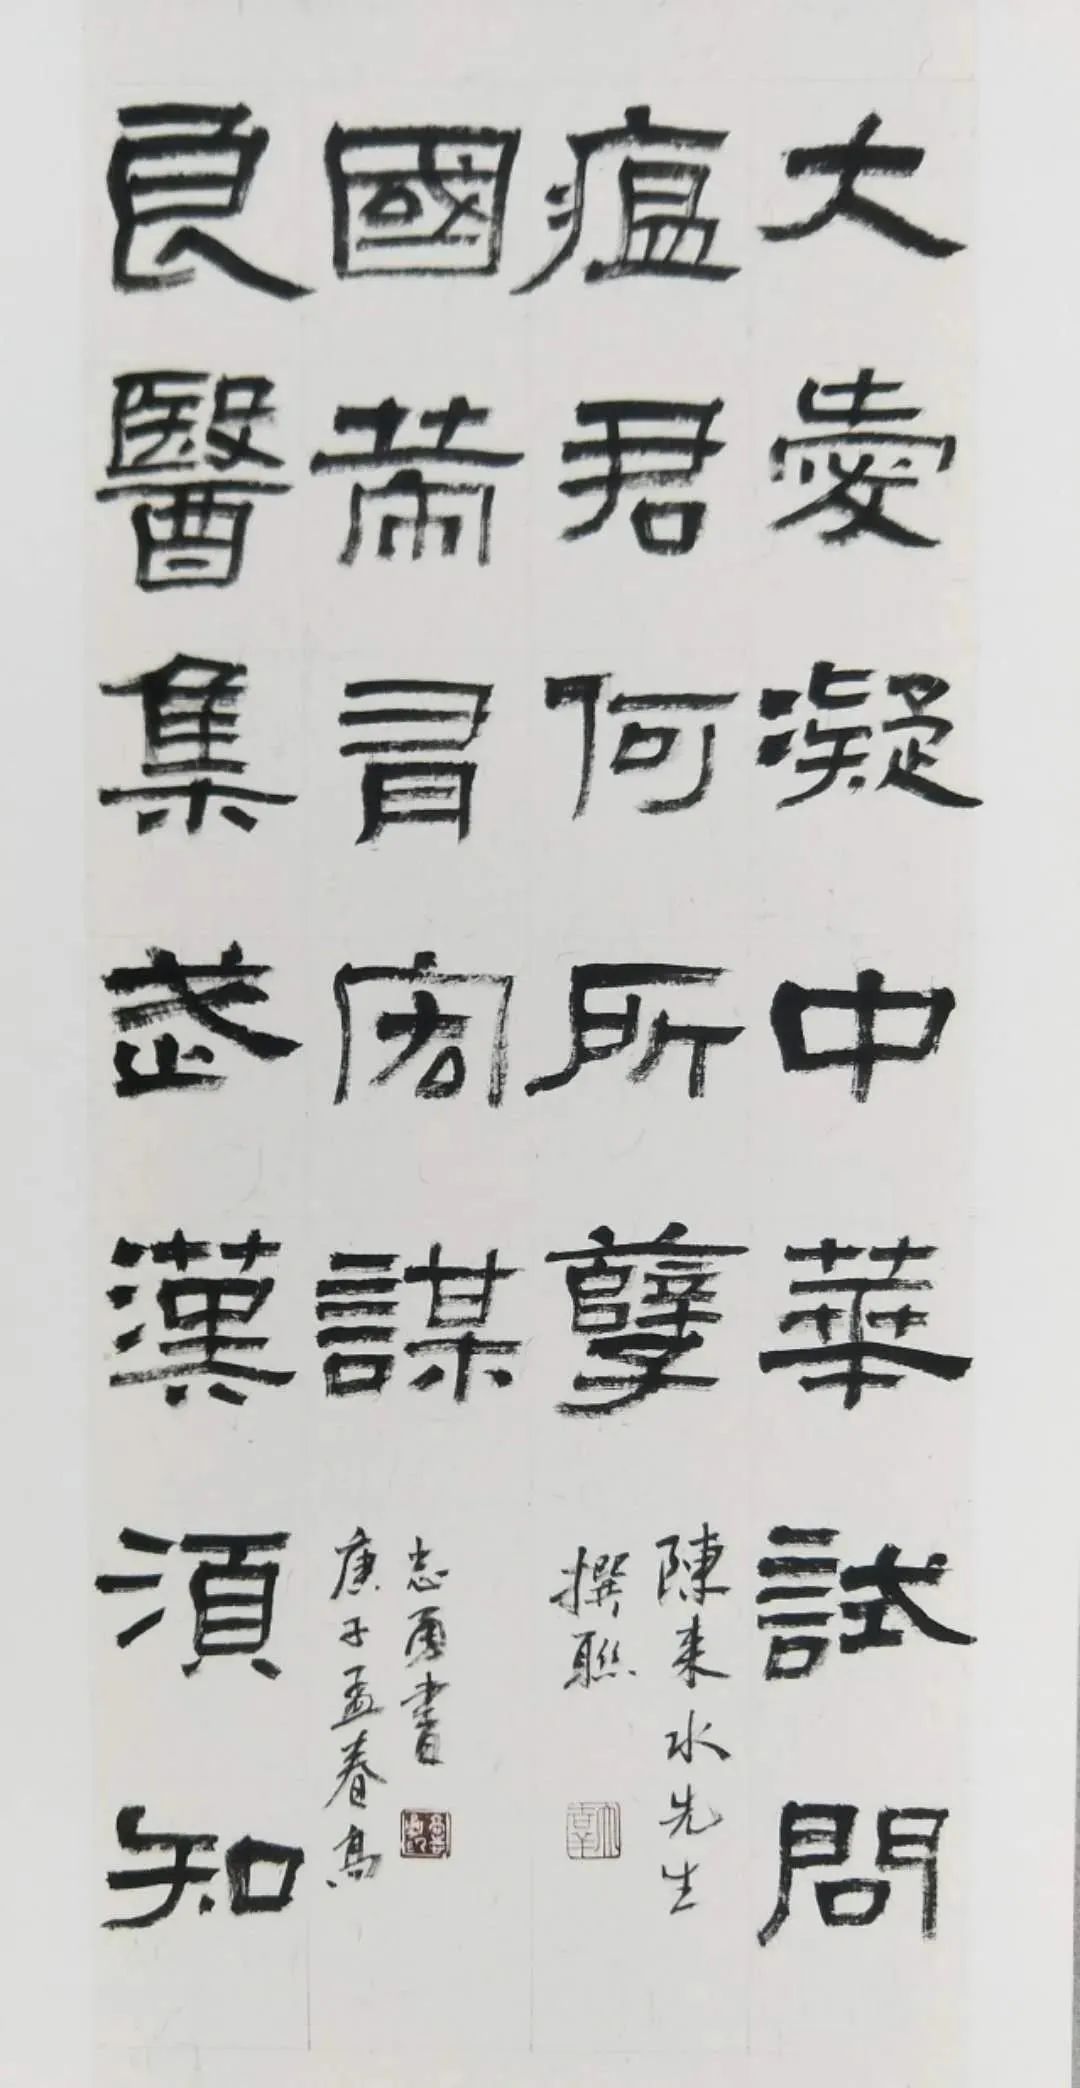 大愛凝中華試問
瘟君何所孽
陳来水先生
撰聯
良醫集武漢須知
國宏謀
庚子孟春高
志勇書